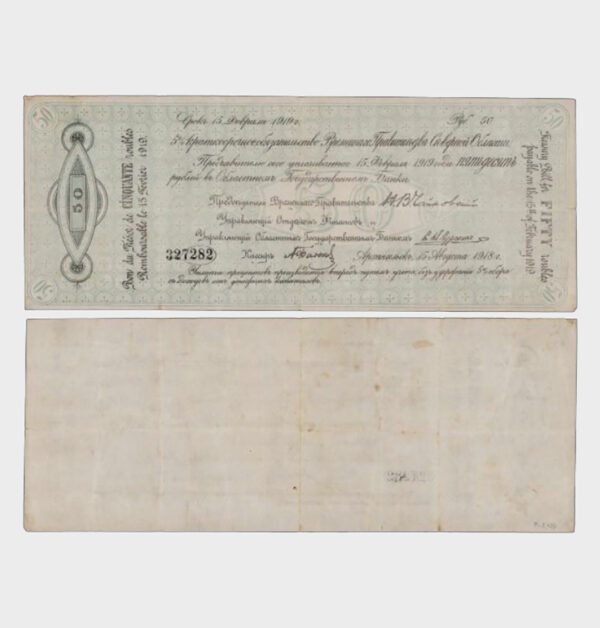 Срокъ 15 Февраля 1919 г.
Руб 50
5% Краткосрочное обязательство Временнаго Правительства Сѣверной Области.
Предъявителю сего уплачиваетъ 15 Февраля 1919 года пятьдесятъ
рублей въ Областномъ Государственномъ Банкѣ
Предсѣдатель Временнаго Правительства
Управляющій Отдѣломъ Финансовъ
Управляющій Областнымъ Государственнымъ Банкомъ
327282 Кассиръ
Архангельскъ, 15 Августа 1918 г.
Уплата процентовъ произведена впередъ путемъ учета, безъ удержанія 5% сбора
съ доходовъ отъ денежныхъ капиталовъ.
50
50
50
50
50
Bon du Trésor de CINQUANTE roubles
Remboursable le 15 Février 1919.
FIFTY roubles
payable on the 15th of February 1919